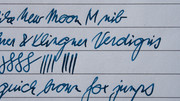 New Moon M nib
& Klingner Verdigris
8888
quick brown fox jumps